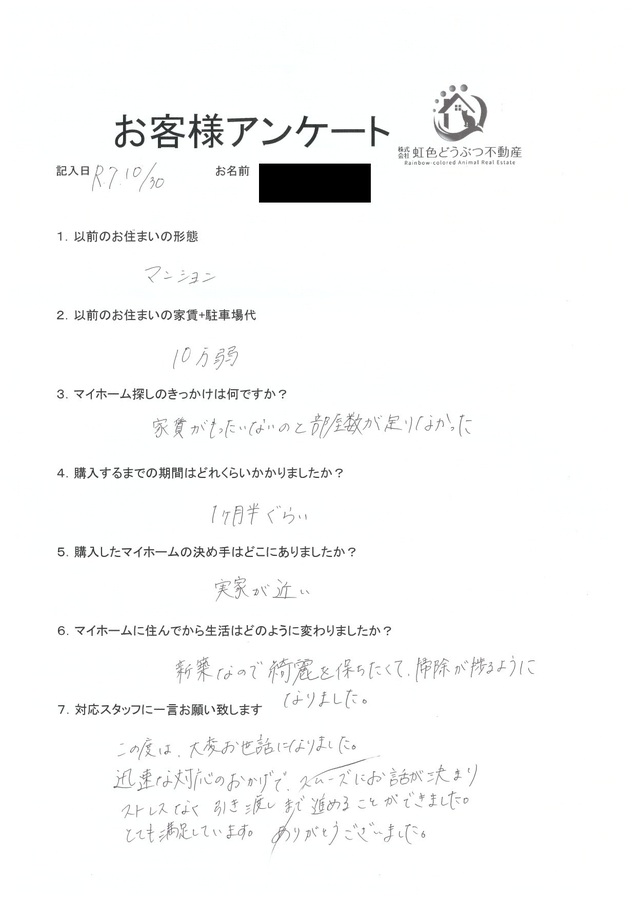 お客様アンケート
株式会社 虹色どうぶつ不動産
Rainbow-colored Animal Real Estate
記入日 R.7.10/30 お名前
1．以前のお住まいの形態
マンション
2．以前のお住まいの家賃+駐車場代
10万弱
3．マイホーム探しのきっかけは何ですか？
家賃がもったいないのと部屋数が足りなかった
4．購入するまでの期間はどれくらいかかりましたか？
1ヶ月半ぐらい
5．購入したマイホームの決め手はどこにありましたか？
実家が近い
6．マイホームに住んでから生活はどのように変わりましたか？
新築なので綺麗を保ちたくて、掃除が捗るように
なりました。
7．対応スタッフに一言お願い致します
この度は、大変お世話になりました。
迅速な対応のおかげで、スムーズにお話が決まり
ストレスなく引き渡しまで進めることができました。
とても満足しています。ありがとうございました。